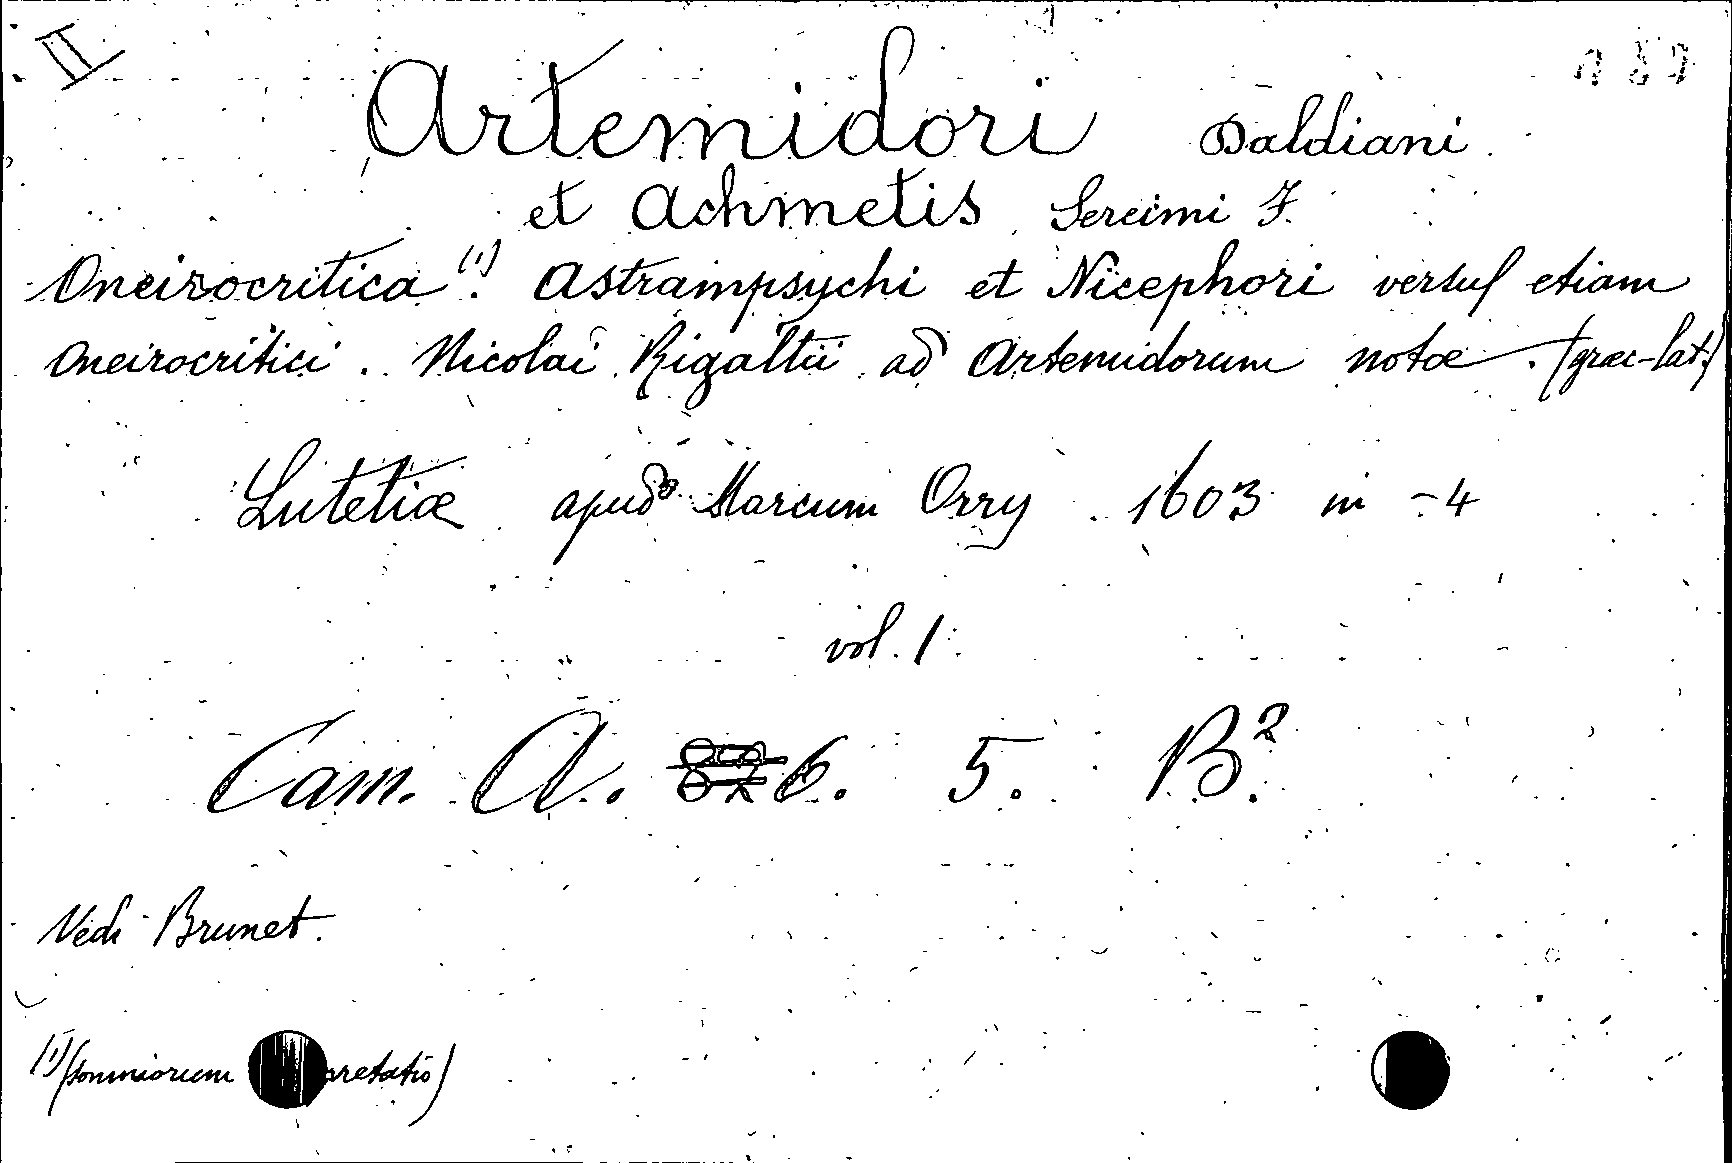 II
Artemidori Daldiani
et Achmetis Sereimi F.
Oneirocritica (1). Astrampsychi et Nicephori versus etiam
oneirocritici. Nicolai Rigaltii ad Artemidorum notæ. (græc-lat.)
Lutetiæ apud Marcum Orry 1603 in -4
vol. 1.
Cam. A. 6. 5. B2.
Vedi Brunet.
(1) (somniorum pretatio)